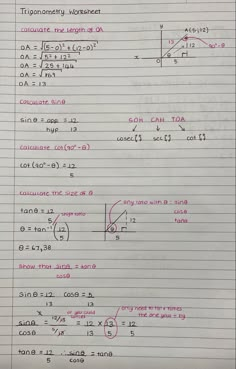 Trigonometry Worksheet
Calculate the length of OA
OA = √(5-0)² + (12-0)²
OA = √5² + 12²
OA = √25 + 144
OA = √169
OA = 13
y
A(5;12)
13
12
90°-θ
θ
O
5
Calculate sinθ
sinθ = opp = 12
hyp 13
SOH CAH TOA
cosec[] sec[] cot[]
Calculate cot(90°-θ)
cot(90°-θ) = 12
5
Calculate the size of θ
tanθ = 12
5
θ = tan⁻¹(12
5)
θ = 67,38
any ratio with θ: sinθ
cosθ
tanθ
12
θ
5
Show that sinθ = tanθ
cosθ
sinθ = 12 cosθ = 5
13 13
sinθ = 12/13 = 12 x 13 = 12
cosθ 5/13 13 5 5
tanθ = 12 ∴ sinθ = tanθ
5 cosθ